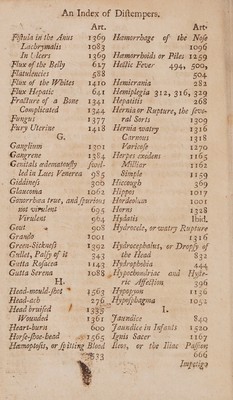 An Index of Distempers.
Art.
Fistula in the Anus 1369
Lachrymalis 1083
In Ulcers 1369
Flux of the Belly 617
Flatulencies 588
Flux of the Whites 1410
Flux Hepatic 641
Fracture of a Bone 1341
Complicated 1344
Fungus 1377
Fury Uterine 1418
G.
Ganglium 1301
Gangrene 1384
Genitals œdematously swel-
led in Lues Venerea 985
Giddiness 306
Glaucoma 1062
Gonorrhœa true, and spurious
not virulent 695
Virulent 964
Gout 908
Grando 1001
Green-Sickness 1392
Gullet, Palsy of it 343
Gutta Rosacea 1143
Gutta Serena 1088
H.
Head-mould-shot 1563
Head-ach 276
Head bruised 1335
Wounded 1361
Heart-burn 600
Horse-shoe-head 1565
Hæmoptysis, or spitting Blood
533
Art.
Hæmorrhage of the Nose
1096
Hæmorrhoids or Piles 1259
Hectic Fever 494, 500,
504
Hemicrania 282
Hemiplegia 312, 316, 329
Hepatitis 268
Hernia or Rupture, the seve-
ral Sorts 1309
Hernia watry 1316
Carnous 1318
Varicose 1270
Herpes exedens 1165
Milliary 1162
Simple 1159
Hiccough 369
Hippos 1017
Hordeolum 1001
Horns 1328
Hydatis Ibid.
Hydrocele, or watry Rupture
1316
Hydrocephalus, or Dropsy of
the Head 832
Hydrophobia 444
Hypochondriac and Hyste-
ric Affection 396
Hypopyon 1136
Hyposphagma 1052
I.
Jaundice 840
Jaundice in Infants 1520
Ignis Sacer 1167
Ileus, or the Iliac Passion
666
Impetigo